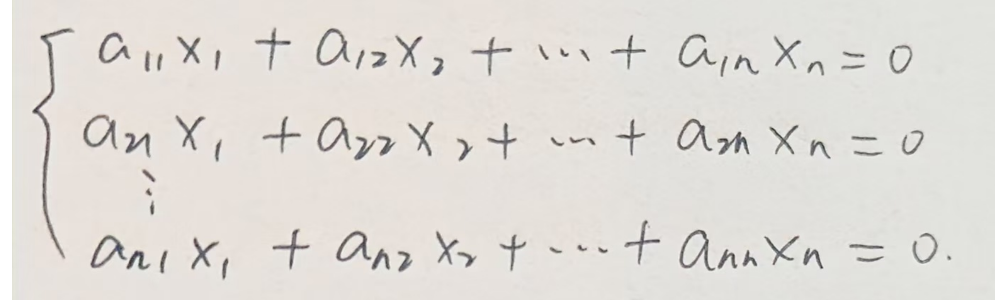 a₁₁x₁ + a₁₂x₂ + ⋯ + a₁ₙxₙ = 0
a₂₁x₁ + a₂₂x₂ + ⋯ + a₂ₙxₙ = 0
⋮
aₙ₁x₁ + aₙ₂x₂ + ⋯ + aₙₙxₙ = 0.